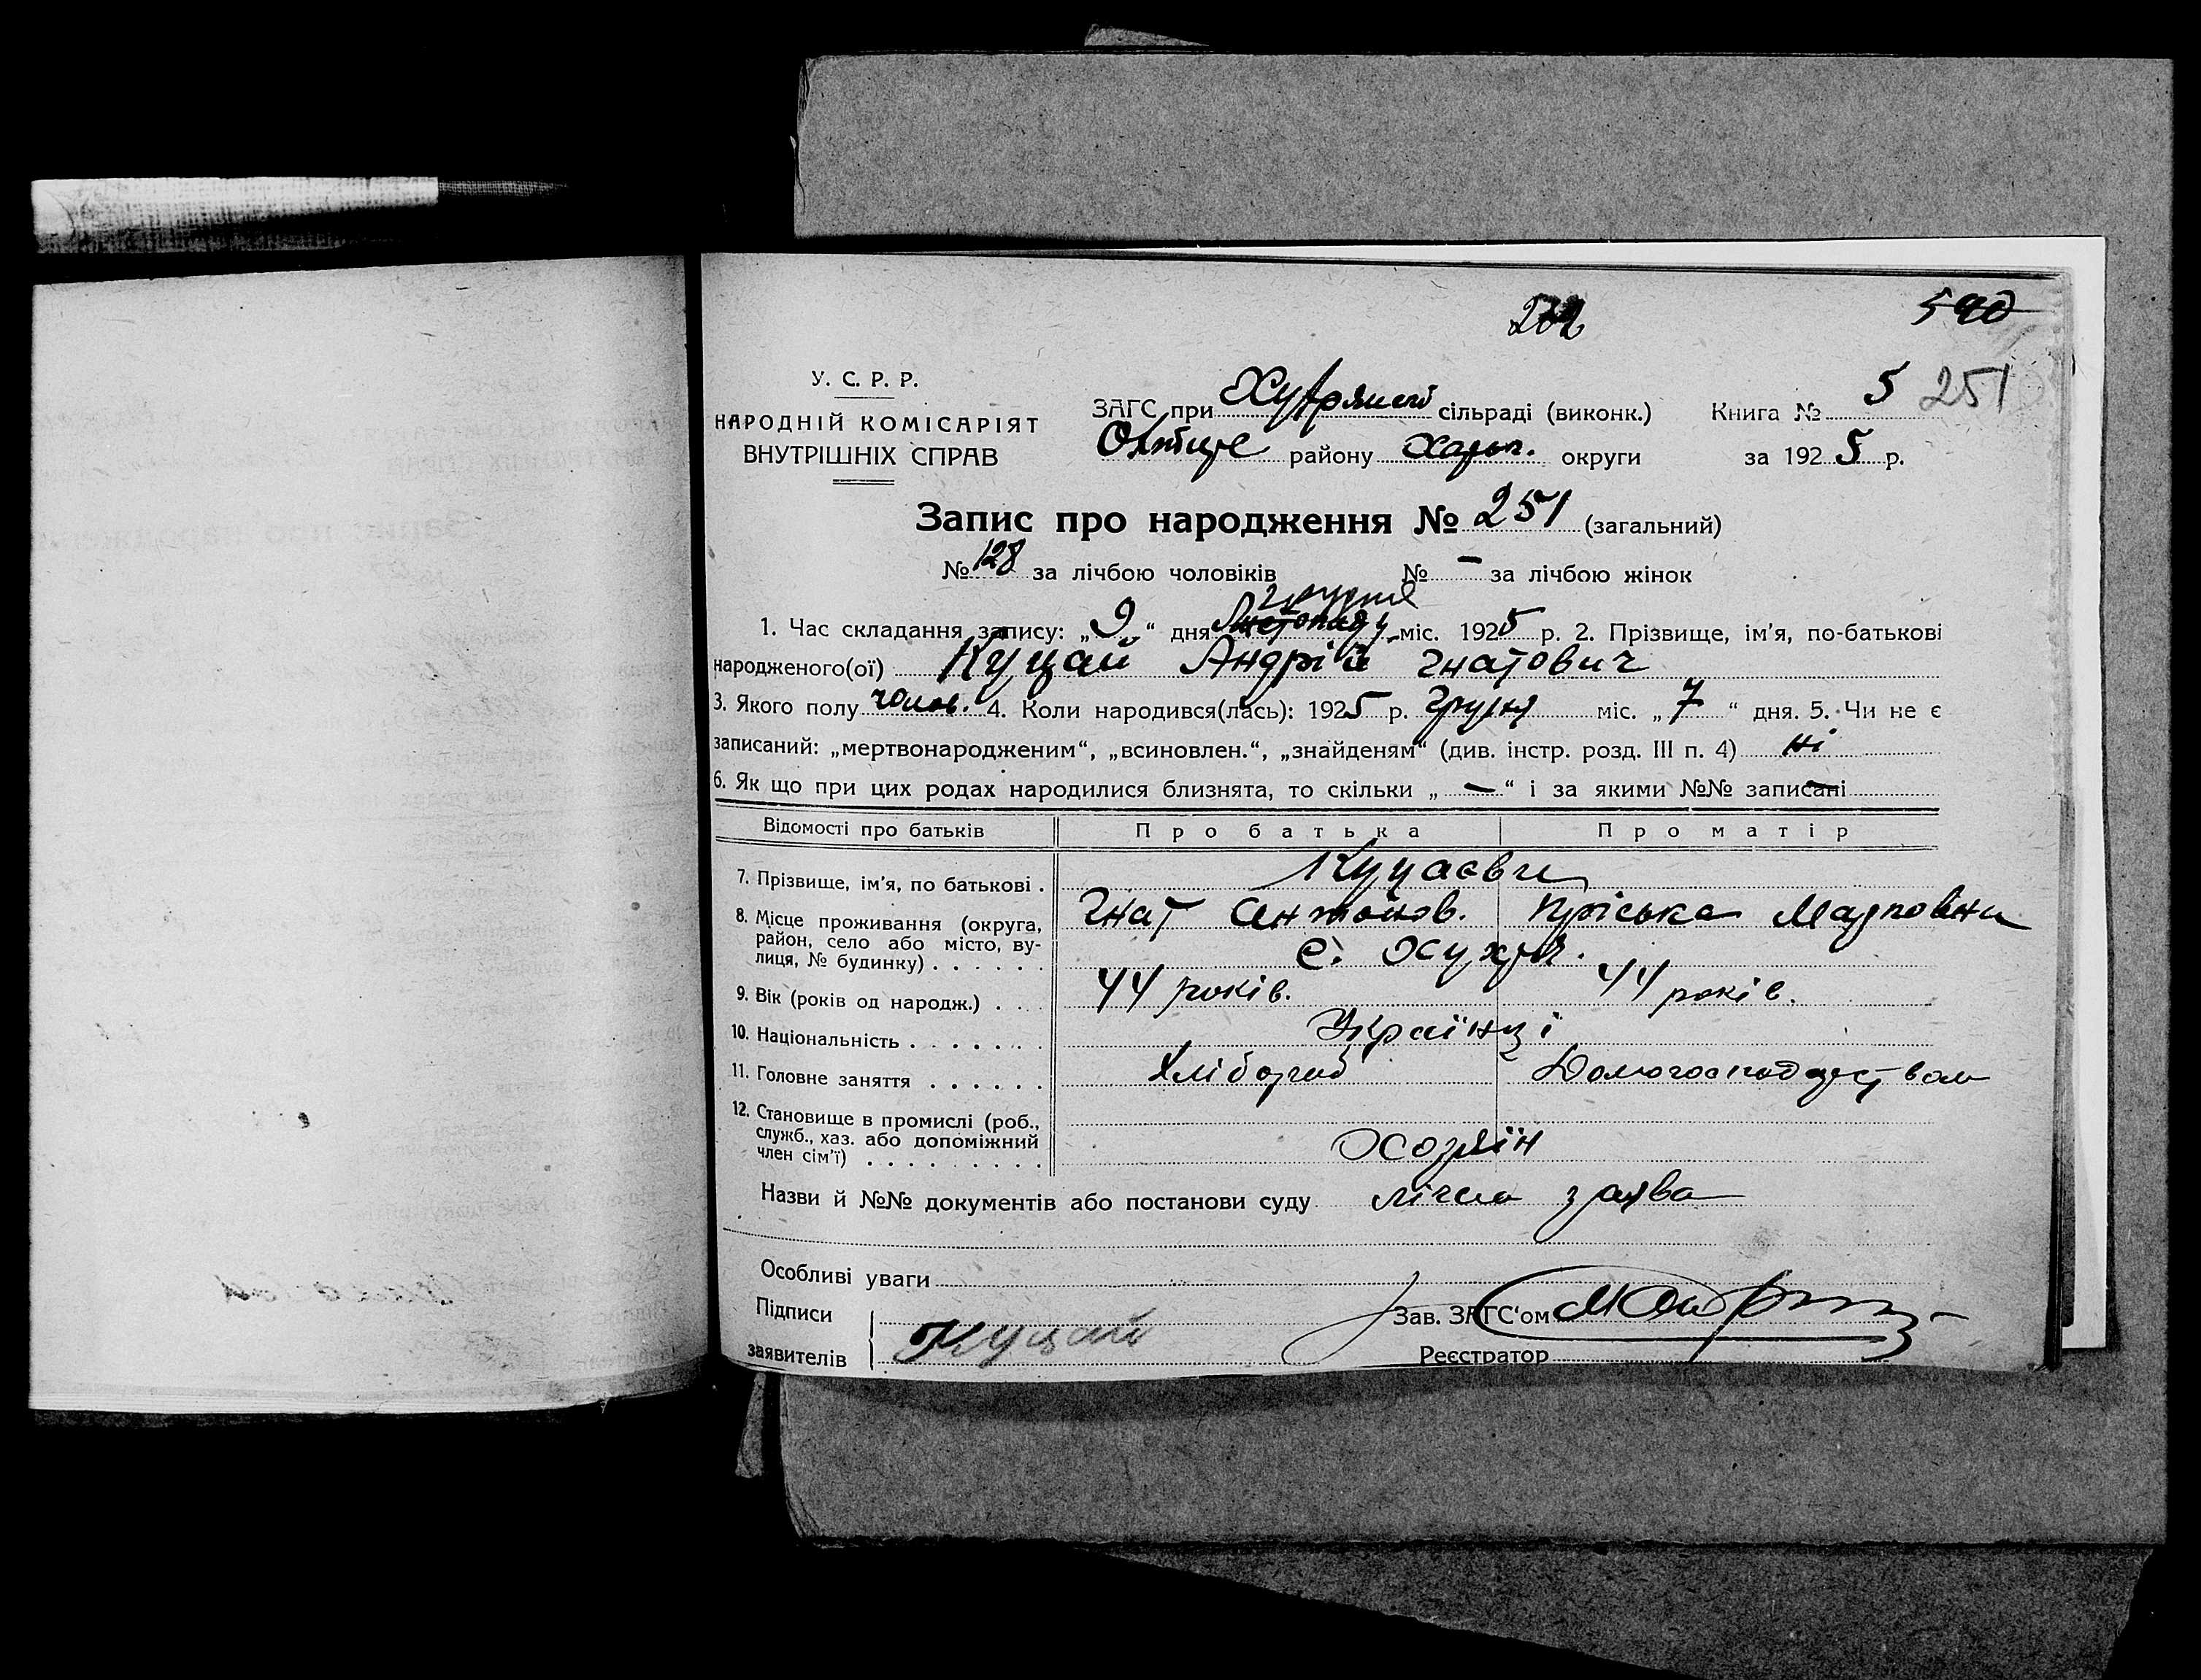 590
5 251
У. С. Р. Р.
НАРОДНІЙ КОМІСАРІЯТ
ВНУТРІШНІХ СПРАВ
ЗАГС при сільраді (виконк.)
району Харьк. округи
Книга №
за 1925 р.
Запис про народження № 251 (загальний)
№ 128 за лічбою чоловіків № — за лічбою жінок
грудня
1. Час складання запису: „9“ дня Листопаду міс. 1925 р. 2. Прізвище, ім'я, по-батькові
народженого(ої) Куцай Андрій Гнатович
3. Якого полу чолов. 4. Коли народився(лась): 1925 р. Грудня міс. „7“ дня. 5. Чи не є
записаний: „мертвонародженим“, „всиновлен.“, „знайденям“ (див. інстр. розд. III п. 4) ні
6. Як що при цих родах народилися близнята, то скільки „—“ і за якими №№ записані —
Відомості про батьків Про батька Про матір
7. Прізвище, ім'я, по батькові . Куцаєви
Гнат Антонов. Пріська Марковна
8. Місце проживання (округа,
район, село або місто, ву-
лиця, № будинку) . . . . . . с.
9. Вік (років од народж.) . . . 44 років. 44 років.
10. Національність . . . . . . . Українці
11. Головне заняття . . . . . . Хлібороб
12. Становище в промислі (роб.,
служб., хаз. або допоміжний
член сім'ї) . . . . . . . . . Хозяїн
Назви й №№ документів або постанови суду лічна заява
Особливі уваги
Підписи
заявителів Куцай
Зав. ЗАГС'ом
Реєстратор